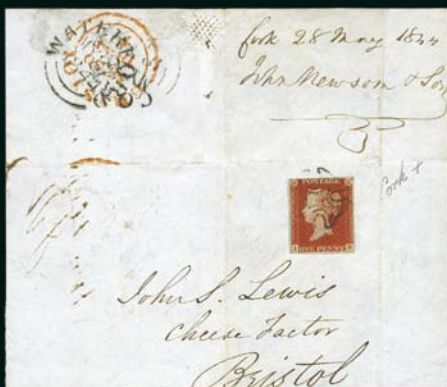 WATERFORD
Cork 28 May 1844
John Newsom & Son
Cork +
POSTAGE
ONE PENNY
John S. Lewis
Cheese Factor
Bristol